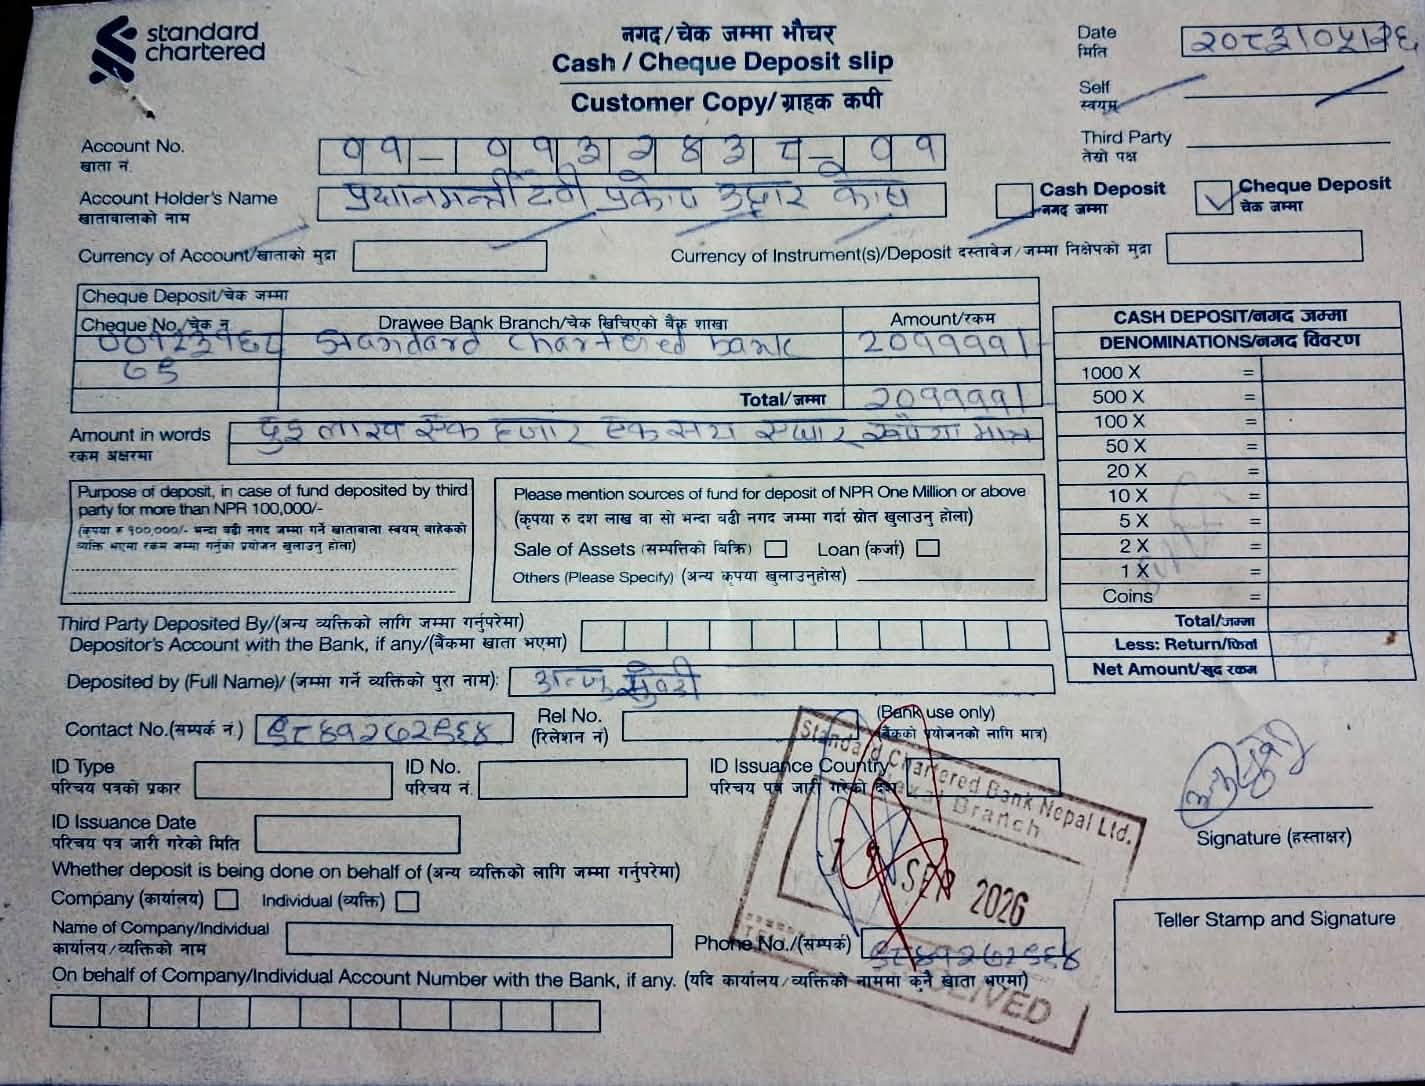 standard
chartered
नगद/चेक जम्मा भौचर
Cash / Cheque Deposit slip
Customer Copy/ग्राहक कपी
Date
मिति
२०८३/०५/२६
Self
स्वयम्
Third Party
तेस्रो पक्ष
Account No.
खाता नं.
०१-०१३२४३८-०१
Account Holder's Name
खातावालाको नाम
प्रधानमन्त्री दैवी प्रकोप उद्धार कोष
Cash Deposit
नगद जम्मा
Cheque Deposit
चेक जम्मा
Currency of Account/खाताको मुद्रा
Currency of Instrument(s)/Deposit दस्तावेज/जम्मा निक्षेपको मुद्रा
Cheque Deposit/चेक जम्मा
Cheque No./चेक नं
Drawee Bank Branch/चेक खिचिएको बैंक शाखा
Amount/रकम
Standard Chartered bank
२०११११/-
Total/जम्मा
२०११११/-
Amount in words
रकम अक्षरमा
दुई लाख एक हजार एक सय एघार रूपैया मात्र
CASH DEPOSIT/नगद जम्मा
DENOMINATIONS/नगद विवरण
1000 X =
500 X =
100 X =
50 X =
20 X =
10 X =
5 X =
2 X =
1 X =
Coins =
Total/जम्मा
Less: Return/फिर्ता
Net Amount/खुद रकम
Purpose of deposit, in case of fund deposited by third
party for more than NPR 100,000/-
(कृपया रु १००,०००/- भन्दा बढी नगद जम्मा गर्ने खातावाला स्वयम् बाहेकको
व्यक्ति भएमा रकम जम्मा गर्नुको प्रयोजन खुलाउनु होला)
Please mention sources of fund for deposit of NPR One Million or above
(कृपया रु दश लाख वा सो भन्दा बढी नगद जम्मा गर्दा स्रोत खुलाउनु होला)
Sale of Assets (सम्पत्तिको बिक्रि)
Loan (कर्जा)
Others (Please Specify) (अन्य कृपया खुलाउनुहोस)
Third Party Deposited By/(अन्य व्यक्तिको लागि जम्मा गर्नुपरेमा)
Depositor's Account with the Bank, if any/(बैंकमा खाता भएमा)
Deposited by (Full Name)/ (जम्मा गर्ने व्यक्तिको पुरा नाम):
Contact No.(सम्पर्क नं.)
९८४१२७२९६४
Rel No.
(रिलेशन नं)
(Bank use only)
(बैंकको प्रयोजनको लागि मात्र)
ID Type
परिचय पत्रको प्रकार
ID No.
परिचय नं.
ID Issuance Country
परिचय पत्र जारी गरेको देश
ID Issuance Date
परिचय पत्र जारी गरेको मिति
Standard Chartered Bank Nepal Ltd.
Naxal Branch
SEP 2026
RECEIVED
Signature (हस्ताक्षर)
Whether deposit is being done on behalf of (अन्य व्यक्तिको लागि जम्मा गर्नुपरेमा)
Company (कार्यालय)
Individual (व्यक्ति)
Name of Company/Individual
कार्यालय/व्यक्तिको नाम
Phone No./(सम्पर्क)
९८४१२७२९६४
Teller Stamp and Signature
On behalf of Company/Individual Account Number with the Bank, if any. (यदि कार्यालय/व्यक्तिको नाममा कुनै खाता भएमा)